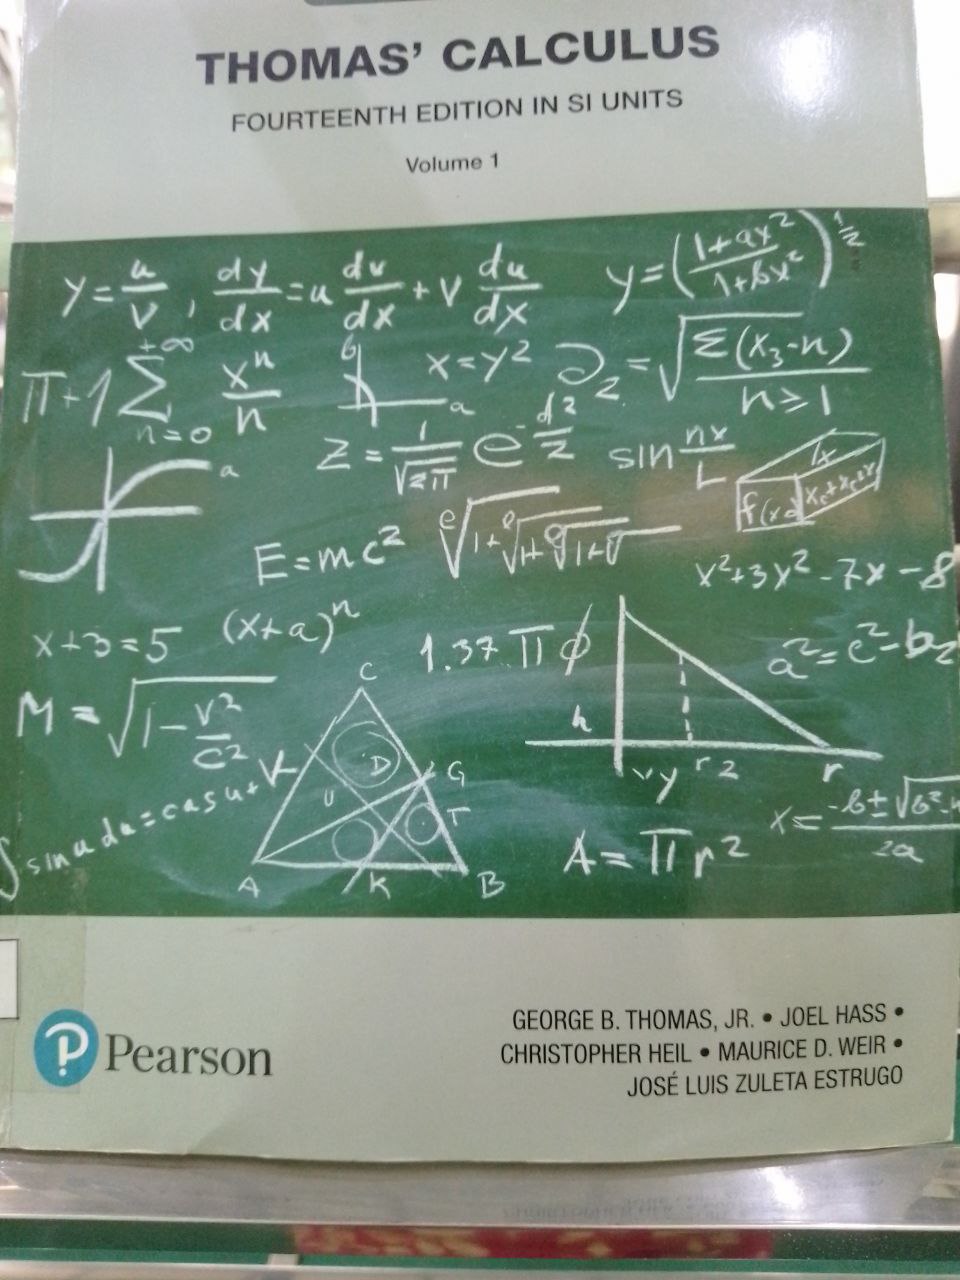 THOMAS' CALCULUS
FOURTEENTH EDITION IN SI UNITS
Volume 1
y = u/v , dy/dx = u dv/dx + v du/dx
y = ((1+ax²)/(1+bx²))^½
π+1 ∑ xⁿ/n
+∞
n=0
b
a
x = y²
∂₂ = √(Σ(x₃-n)/(n≥1))
z = 1/√2π e
sin nx/L
a
f(x
E = mc²
x²+3y²-7x-8
x+3=5
(x+a)ⁿ
1.37 π ϕ
a² = c² - b₂
M = √(1 - v²/c²)
C
D
G
T
U
A
K
B
h
y r 2
r
∫ sin u du = cas u +
A = πr²
x = -b±√b²-
2a
Pearson
GEORGE B. THOMAS, JR. • JOEL HASS •
CHRISTOPHER HEIL • MAURICE D. WEIR •
JOSÉ LUIS ZULETA ESTRUGO